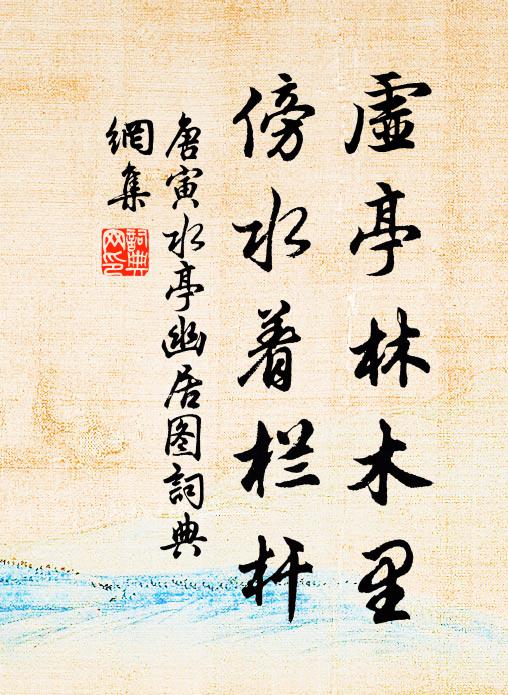 虚亭林木里
傍水着栏杆
唐寅水亭幽居图詞典
網集
詞典网印